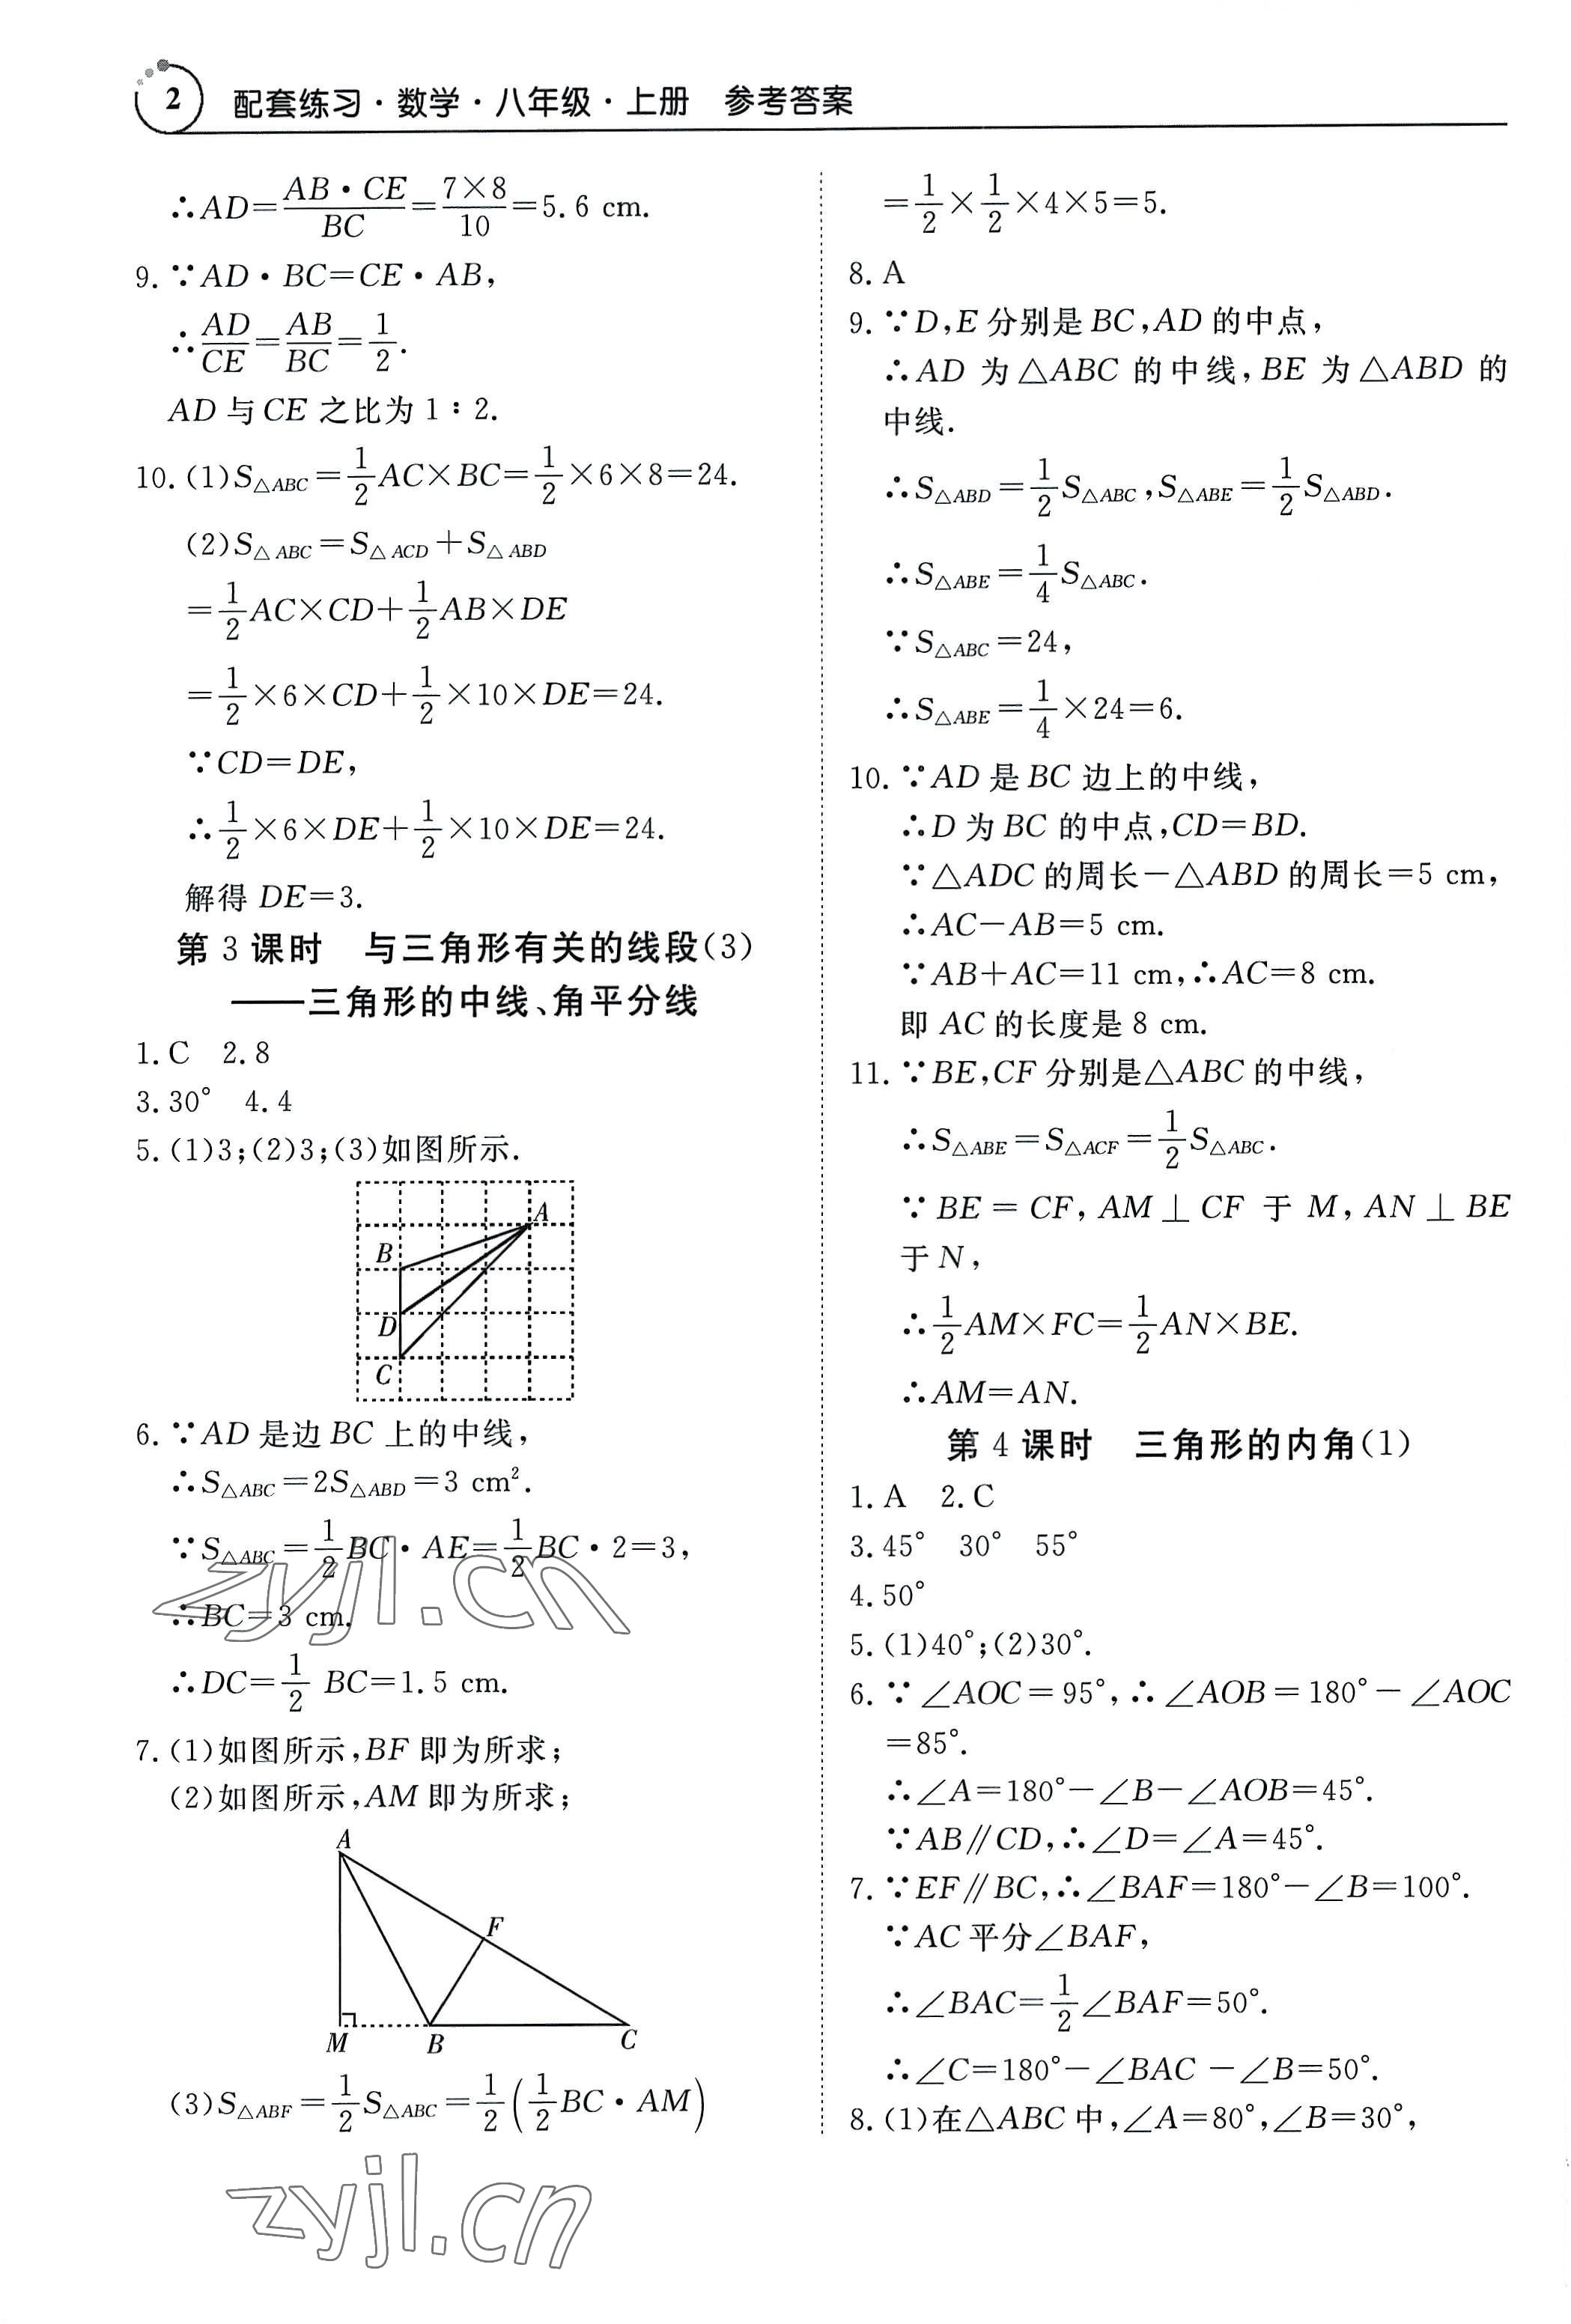 2 配套练习·数学·八年级·上册 参考答案
∴AD=AB·CE/BC=7×8/10=5.6 cm.
9.∵AD·BC=CE·AB,
∴AD/CE=AB/BC=1/2.
AD与CE之比为1∶2.
10.(1)S△ABC=1/2AC×BC=1/2×6×8=24.
(2)S△ABC=S△ACD+S△ABD
=1/2AC×CD+1/2AB×DE
=1/2×6×CD+1/2×10×DE=24.
∵CD=DE,
∴1/2×6×DE+1/2×10×DE=24.
解得DE=3.
第3课时 与三角形有关的线段(3)
——三角形的中线、角平分线
1.C 2.8
3.30° 4.4
5.(1)3;(2)3;(3)如图所示.
A
B
D
C
6.∵AD是边BC上的中线,
∴S△ABC=2S△ABD=3 cm².
∵S△ABC=1/2BC·AE=1/2BC·2=3,
∴BC=3 cm.
∴DC=1/2 BC=1.5 cm.
7.(1)如图所示,BF即为所求;
(2)如图所示,AM即为所求;
A
F
M B C
(3)S△ABF=1/2S△ABC=1/2(1/2BC·AM)
=1/2×1/2×4×5=5.
8.A
9.∵D,E分别是BC,AD的中点,
∴AD为△ABC的中线,BE为△ABD的
中线.
∴S△ABD=1/2S△ABC,S△ABE=1/2S△ABD.
∴S△ABE=1/4S△ABC.
∵S△ABC=24,
∴S△ABE=1/4×24=6.
10.∵AD是BC边上的中线,
∴D为BC的中点,CD=BD.
∵△ADC的周长-△ABD的周长=5 cm,
∴AC-AB=5 cm.
∵AB+AC=11 cm,∴AC=8 cm.
即AC的长度是8 cm.
11.∵BE,CF分别是△ABC的中线,
∴S△ABE=S△ACF=1/2S△ABC.
∵BE=CF,AM⊥CF于M,AN⊥BE
于N,
∴1/2AM×FC=1/2AN×BE.
∴AM=AN.
第4课时 三角形的内角(1)
1.A 2.C
3.45° 30° 55°
4.50°
5.(1)40°;(2)30°.
6.∵∠AOC=95°,∴∠AOB=180°-∠AOC
=85°.
∴∠A=180°-∠B-∠AOB=45°.
∵AB∥CD,∴∠D=∠A=45°.
7.∵EF∥BC,∴∠BAF=180°-∠B=100°.
∵AC平分∠BAF,
∴∠BAC=1/2∠BAF=50°.
∴∠C=180°-∠BAC-∠B=50°.
8.(1)在△ABC中,∠A=80°,∠B=30°,
zyjl.cn
zyjl.cn